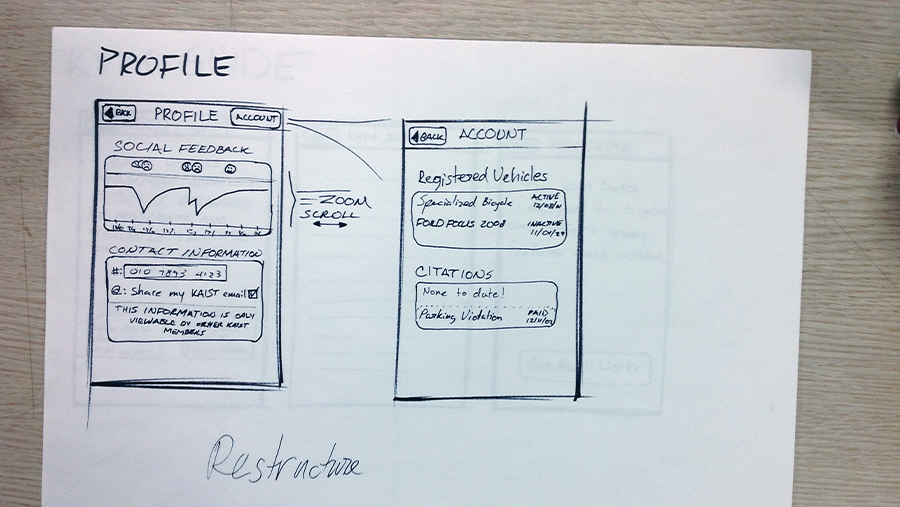 PROFILE
BACK PROFILE ACCOUNT
SOCIAL FEEDBACK
CONTACT INFORMATION
#: 010 7893 4123
@: Share my KAIST email
THIS INFORMATION IS ONLY
VIEWABLE BY OTHER KAIST
MEMBERS
ZOOM
SCROLL
BACK ACCOUNT
Registered Vehicles
Specialized Bicycle ACTIVE
FORD FOCUS 2008 INACTIVE
CITATIONS
None to date!
Parking Violation PAID
Restructure